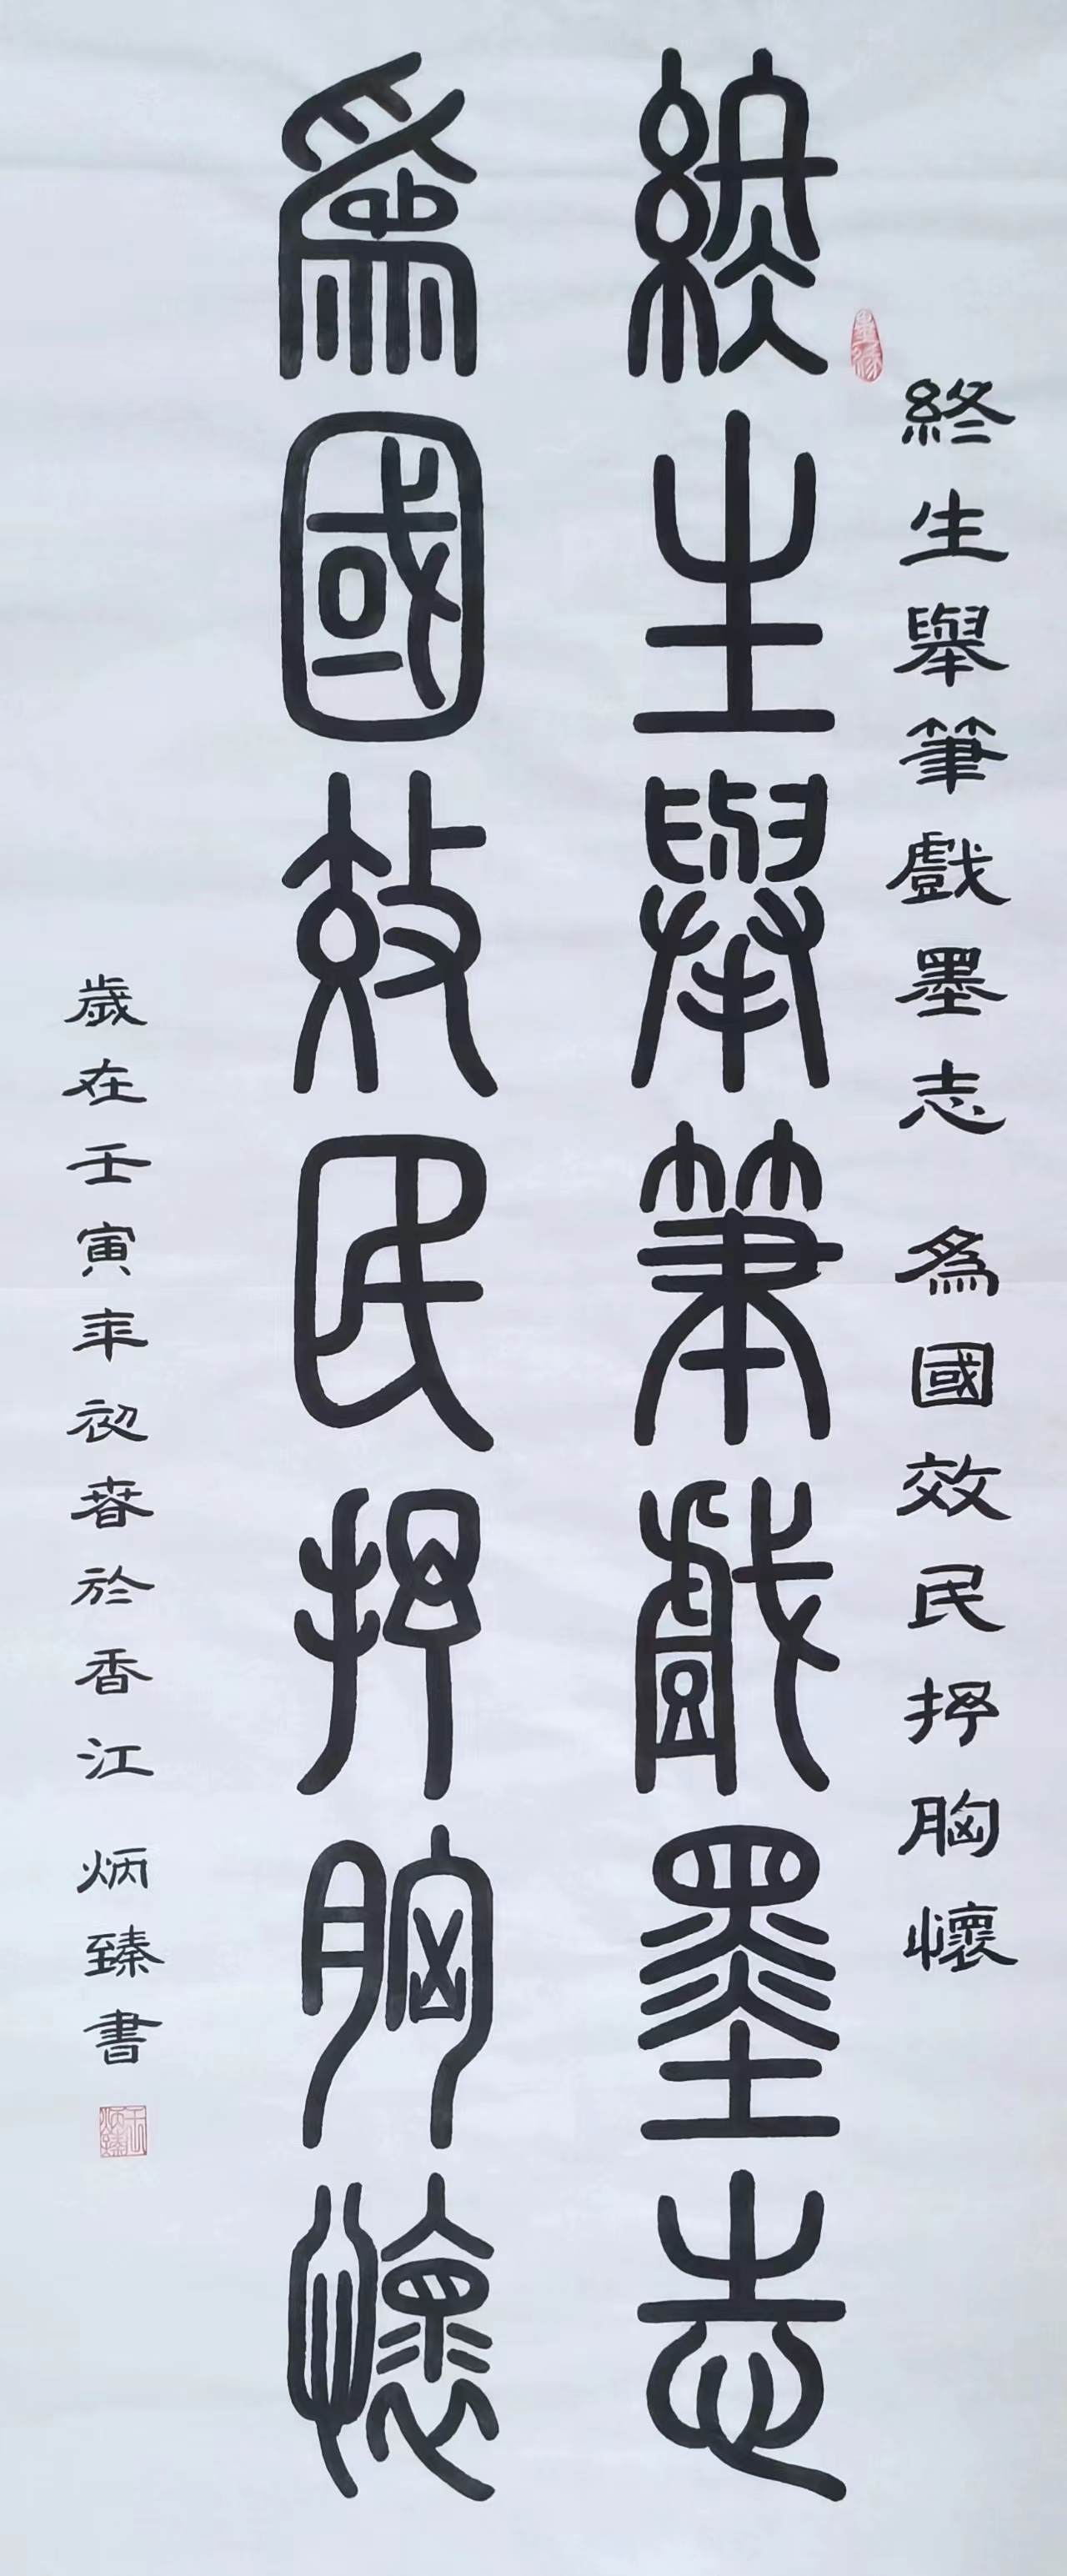 終生舉筆戲墨志 為國效民抒胸懷
終生舉筆戲墨志
為國效民抒胸懷
歲在壬寅年初春於香江 炳臻書